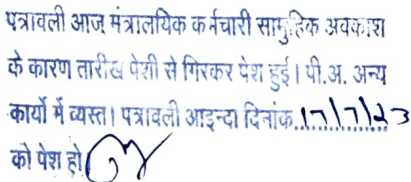 पत्रावली आज मंत्रालयिक कर्मचारी सामुहिक अवकाश
के कारण तारीख पेशी से गिरकर पेश हुई। पी.अ. अन्य
कार्यो में व्यस्त। पत्रावली आइन्दा दिनांक 17/7/23
को पेश हो